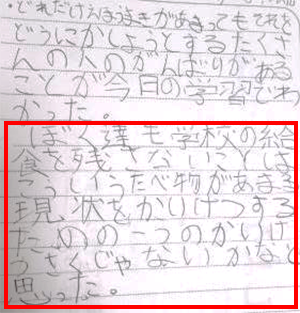 ・どれだけえほうまきがあまってもそれを
どうにかしようとするたくさ
んの人のがんばりがある
ことが今日の学習でわ
かった。
ぼく達も学校の給
食を残さないことは
こういうたべ物があまる
現状をかいけつする
ための一つのかいけ
つさくじゃないかなと
思った。